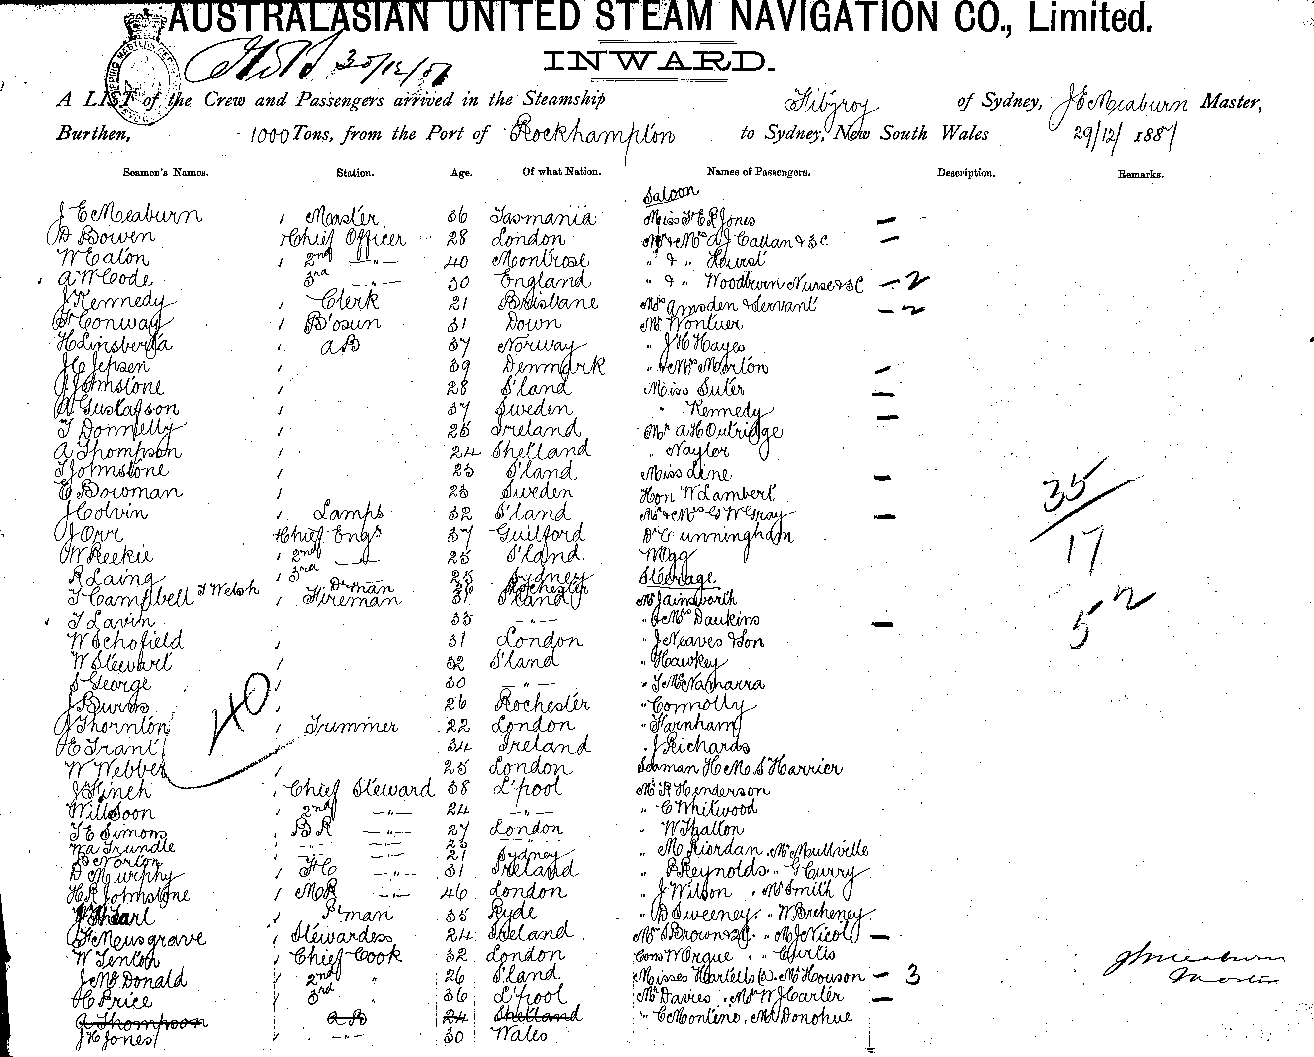 AUSTRALASIAN UNITED STEAM NAVIGATION CO., Limited.
30/12/87
INWARD.
A LIST of the Crew and Passengers arrived in the Steamship Fitzroy of Sydney, J E Meaburn Master,
Burthen, 1000 Tons, from the Port of Rockhampton to Sydney, New South Wales 29/12/ 1887
Seamen's Names. Station. Age. Of what Nation. Names of Passengers. Description. Remarks.
Saloon
J E Meaburn Master 36 Tasmania Miss F E R Jones
D Bowen Chief Officer 28 London Mr & Mrs A J Callan & SC
W Eaton 2nd -"- 40 Montrose " & " Hourst
A W Code 3rd -"- 30 England " & " Woodburn Nurse & C 2
J Kennedy Clerk 21 Brisbane Mrs Amsden & Servant 2
Conway B'osun 31 Down Mr
H Linsberga AB 37 Norway " J H Hayes
J C Jepsen 39 Denmark " & Mrs Morton
J Johnstone 28 S'land Miss Suter
A Gustafson 37 Sweden " Kennedy
T Donnelly 25 Ireland Mr A H Outridge
A Thompson 24 Shetland " Naylor
T Johnstone 25 S'land Miss Lene
C Bowman 25 Sweden Hon W Lambert
J Colvin Lamps 32 S'land Mr & Mrs G W Gray 35
J Orr Chief Engr 37 Guilford Dr Cunningham 17
W Reekie 2nd -"- 25 S'land W Ogg
R Laing 3rd 25 Sydney Steerage
T Welsh D'man Rochester
T Campbell Fireman 31 S'land Mr Jainsworth 52
T Lavin 33 -"- " & Mrs Daukins
W Schofield 31 London " J Neaves & Son
W Stewart 32 S'land " Hawkey
S George 30 -"- " J McNamarra
J Burns 26 Rochester " Connolly
40
J Thornton Trimmer 22 London " Farnham
H E Grant 34 Ireland " J Richards
W Webber 25 London Seaman H.M.S Harrier
J Finch Chief Steward 38 L'pool Mr R Henderson
Will Soon 2nd -"- 24 -"- " C Whitwood
T E Simons BR -"- 27 London " W Hatton
W A Trundle -"- 23 -"-
D Norton 21 Sydney " M Riordan Mr Mullville
D Murphy FC -"- 31 Ireland " P Reynolds " G Curry
H R Johnstone MR -"- 46 London " J Wilson " Mr Smith
P'man 35 Ryde " D Sweeney " W Breheney
F Musgrave Stewardess 24 Ireland Mrs S Brown " M J Nicol
W Tenton Chief Cook 32 London Cons W Orgue " Curtis
J McDonald 2nd " 26 S'land Misses Hartells (2) Mr Houson 3
H Price 3rd 36 L'pool Mr Davies " Mr W J Carter
A Thompson AB 24 Shetland " C Montino, Mr Donohue
J H Jones -"- 30 Wales
J E Meaburn
Master